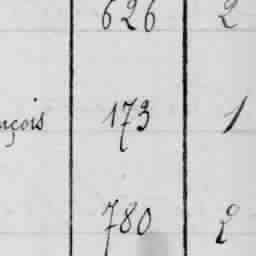 626 2
nçois 173 1
780 2